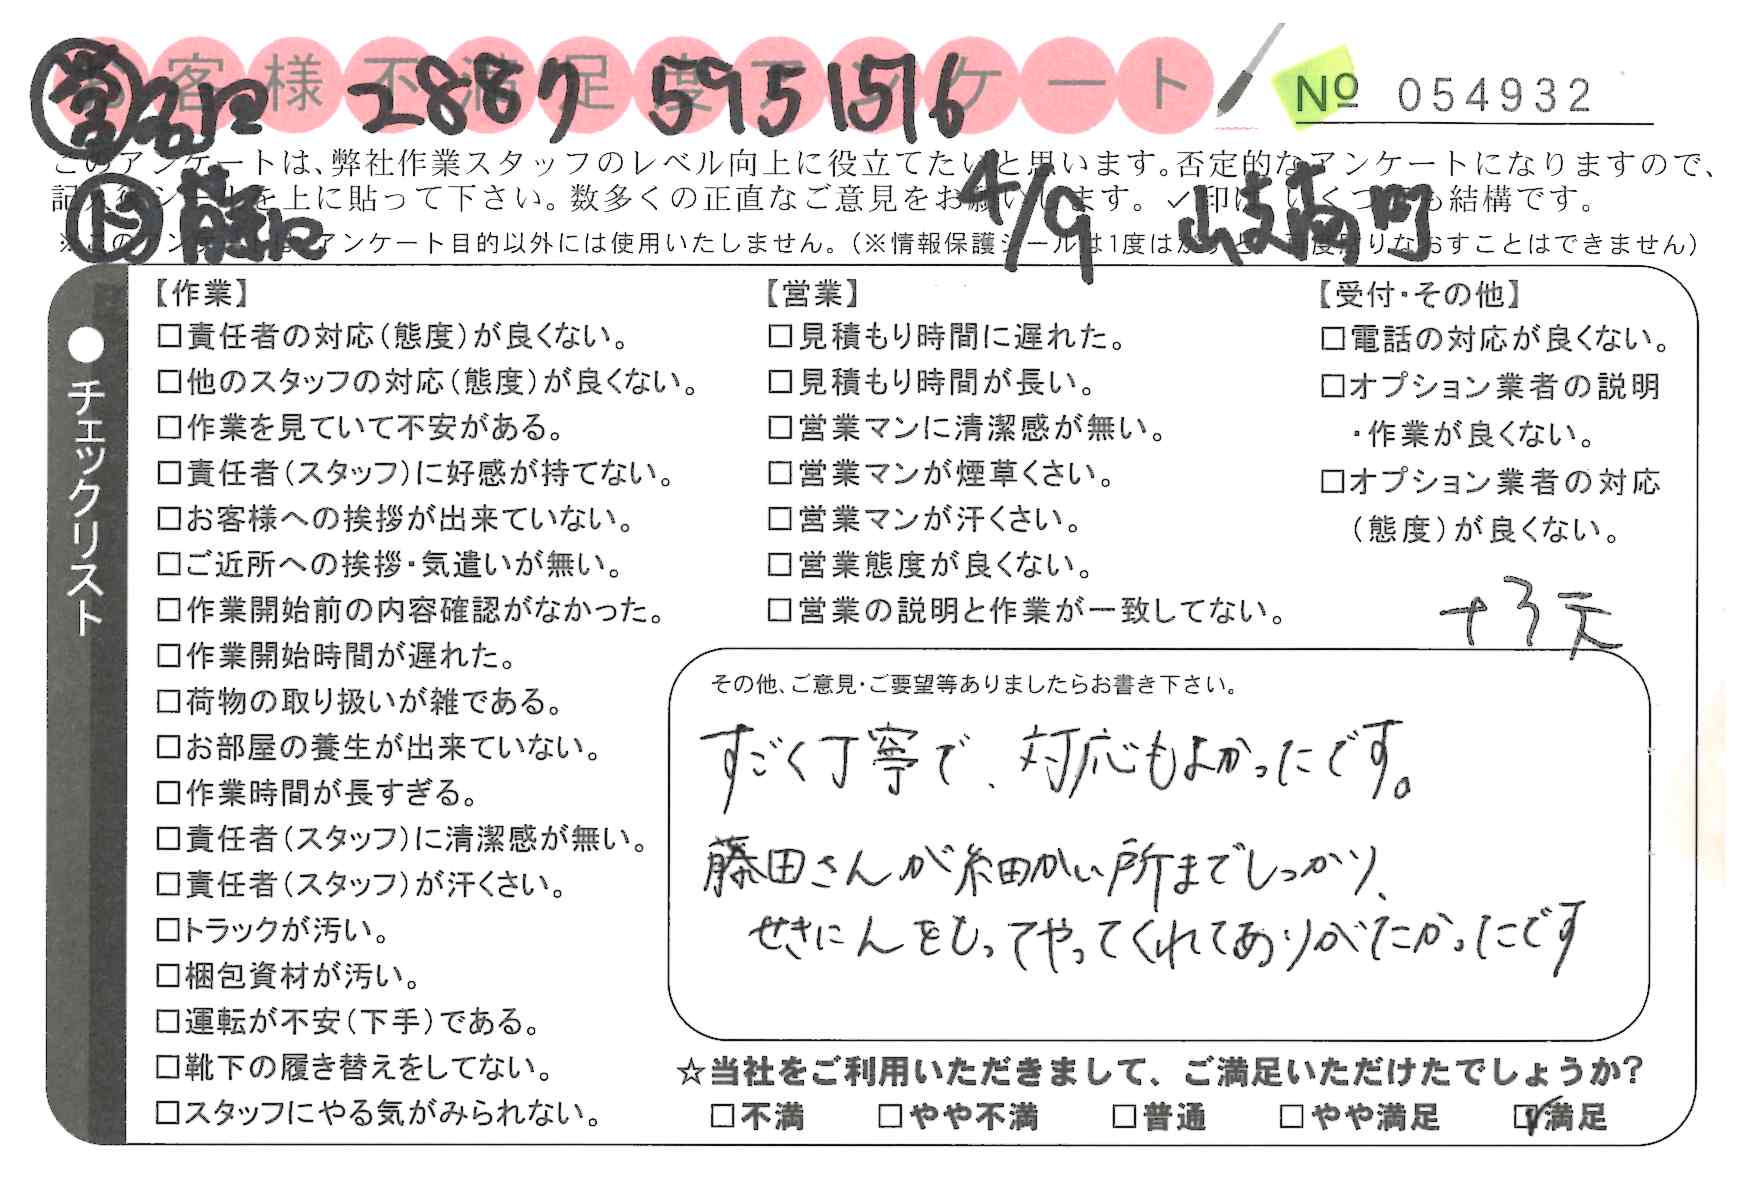 お客様不満足度アンケート
2887 5951516
№ 054932
このアンケートは、弊社作業スタッフのレベル向上に役立てたいと思います。否定的なアンケートになりますので、
記入後シールを上に貼って下さい。数多くの正直なご意見をお願いします。✓印は、いくつでも結構です。
4/9
※このアンケートは、アンケート目的以外には使用いたしません。(※情報保護シールは1度はがすと、再度貼りなおすことはできません)
●チェックリスト
【作業】
□責任者の対応(態度)が良くない。
□他のスタッフの対応(態度)が良くない。
□作業を見ていて不安がある。
□責任者(スタッフ)に好感が持てない。
□お客様への挨拶が出来ていない。
□ご近所への挨拶・気遣いが無い。
□作業開始前の内容確認がなかった。
□作業開始時間が遅れた。
□荷物の取り扱いが雑である。
□お部屋の養生が出来ていない。
□作業時間が長すぎる。
□責任者(スタッフ)に清潔感が無い。
□責任者(スタッフ)が汗くさい。
□トラックが汚い。
□梱包資材が汚い。
□運転が不安(下手)である。
□靴下の履き替えをしてない。
□スタッフにやる気がみられない。
【営業】
□見積もり時間に遅れた。
□見積もり時間が長い。
□営業マンに清潔感が無い。
□営業マンが煙草くさい。
□営業マンが汗くさい。
□営業態度が良くない。
□営業の説明と作業が一致してない。
【受付・その他】
□電話の対応が良くない。
□オプション業者の説明
・作業が良くない。
□オプション業者の対応
(態度)が良くない。
その他、ご意見・ご要望等ありましたらお書き下さい。
すごく丁寧で、対応もよかったです。
藤田さんが細かい所までしっかり、
せきにんをもってやってくれてありがたかったです
☆当社をご利用いただきまして、ご満足いただけたでしょうか?
□不満 □やや不満 □普通 □やや満足 ☑満足